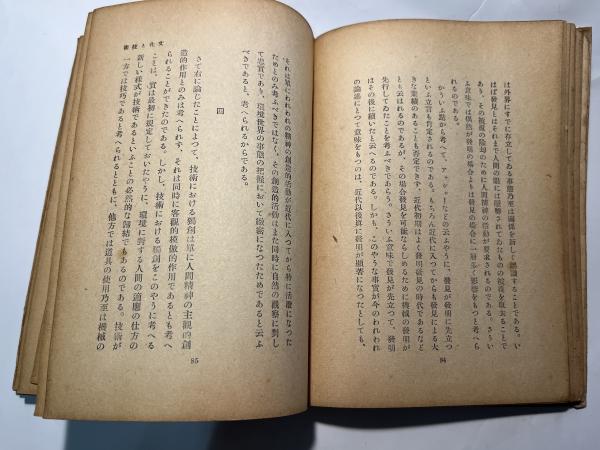 は外界にすでに存立してゐる事態乃至は關係を新しく認識することである。い
はば發見とはそれまで人間の眼には隱蔽されてゐたものの被覆を取去ることで
あり、その被覆の除却のために人間精神の活動が要求されるのである。さうい
ふ意味では偶然が發明の場合よりは發見の場合に一層多く影響をもつと考へら
れるのである。
かういふ點から考へて、
といふ立言も肯定されるのである。もちろん近代に入つてからも發見による大
きな業績のあることも否定できず、近代初期はよく發明發見の時代であるなど
とも云はれるのであるが、その場合發見を可能ならしめるために機械の發明が
先行してゐたことを考ふべきであらう。さういふ意味で發見が先立つて、發明
はその後に續いたと云へるのである。しかも、このやうな事實が今のわれわれ
の論述にとつて意味をもつのは、近代以後特に發明が顯著になつたとしても、
84
文化と技術
それは單にわれわれの精神の創造的活動が近代に入つてから特に活潑になつた
ためとのみ考ふべきではなく、その創造的活動はまた同時に自然の觀察に對し
て忠實であり、環境世界の事態の把握において嚴密になつたためであると云ふ
べきであると、考へられるからである。
四
さて右に論たことによつて、技術における獨創は單に人間精神の主觀的創
造的作用とのみは考へられず、それは同時に客觀的模倣的作用であるとも考へ
られることができたのである。しかし、技術における獨創をこのやうに考へる
ことは、實は最初に規定しておいたやうに、環境に對する人間の適應の仕方の
新しい樣式が技術であるといふことの必然的な歸結でもあるのである。技術が
一方では技巧であると考へられるとともに、他方では道具の使用乃至は機械の
85